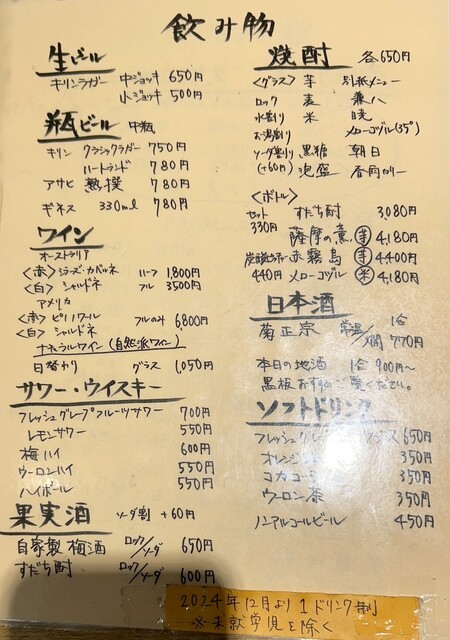 飲み物
生ビール
キリンラガー 中ジョッキ 650円
小ジョッキ 500円
瓶ビール 中瓶
キリン クラシックラガー 750円
ハートランド 780円
アサヒ 熟撰 780円
ギネス 330ml 780円
ワイン
オーストラリア
<赤> シラーズ・カベルネ ハーフ 1,800円
<白> シャルドネ フル 3500円
アメリカ
<赤> ピノノワール フルのみ 6,800円
<白> シャルドネ
ナチュラルワイン (自然派ワイン)
日替わり グラス 1,050円
サワー・ウイスキー
フレッシュグレープフルーツサワー 700円
レモンサワー 550円
梅ハイ 600円
ウーロンハイ 550円
ハイボール 550円
果実酒 ソーダ割 +60円
自家製 梅酒 ロック/ソーダ 650円
すだち酎 ロック/ソーダ 600円
焼酎 各650円
<グラス> 芋 別紙メニュー
ロック 麦 兼八
水割り 米 暁
お湯割り メローコヅル(35°)
ソーダ割り 黒糖 朝日
(+60円) 泡盛
<ボトル>
セット 330円 すだち酎 3,080円
薩摩の薫 芋 4,180円
赤霧島 芋 4,400円
440円 メローコヅル 米 4,180円
日本酒
菊正宗 常温/燗 1合 770円
本日の地酒 1合 900円〜
黒板おすすめご覧ください。
ソフトドリンク
650円
350円
350円
ウーロン茶 350円
ノンアルコールビール 450円
2024年12月より1ドリンク制
※未就学児を除く